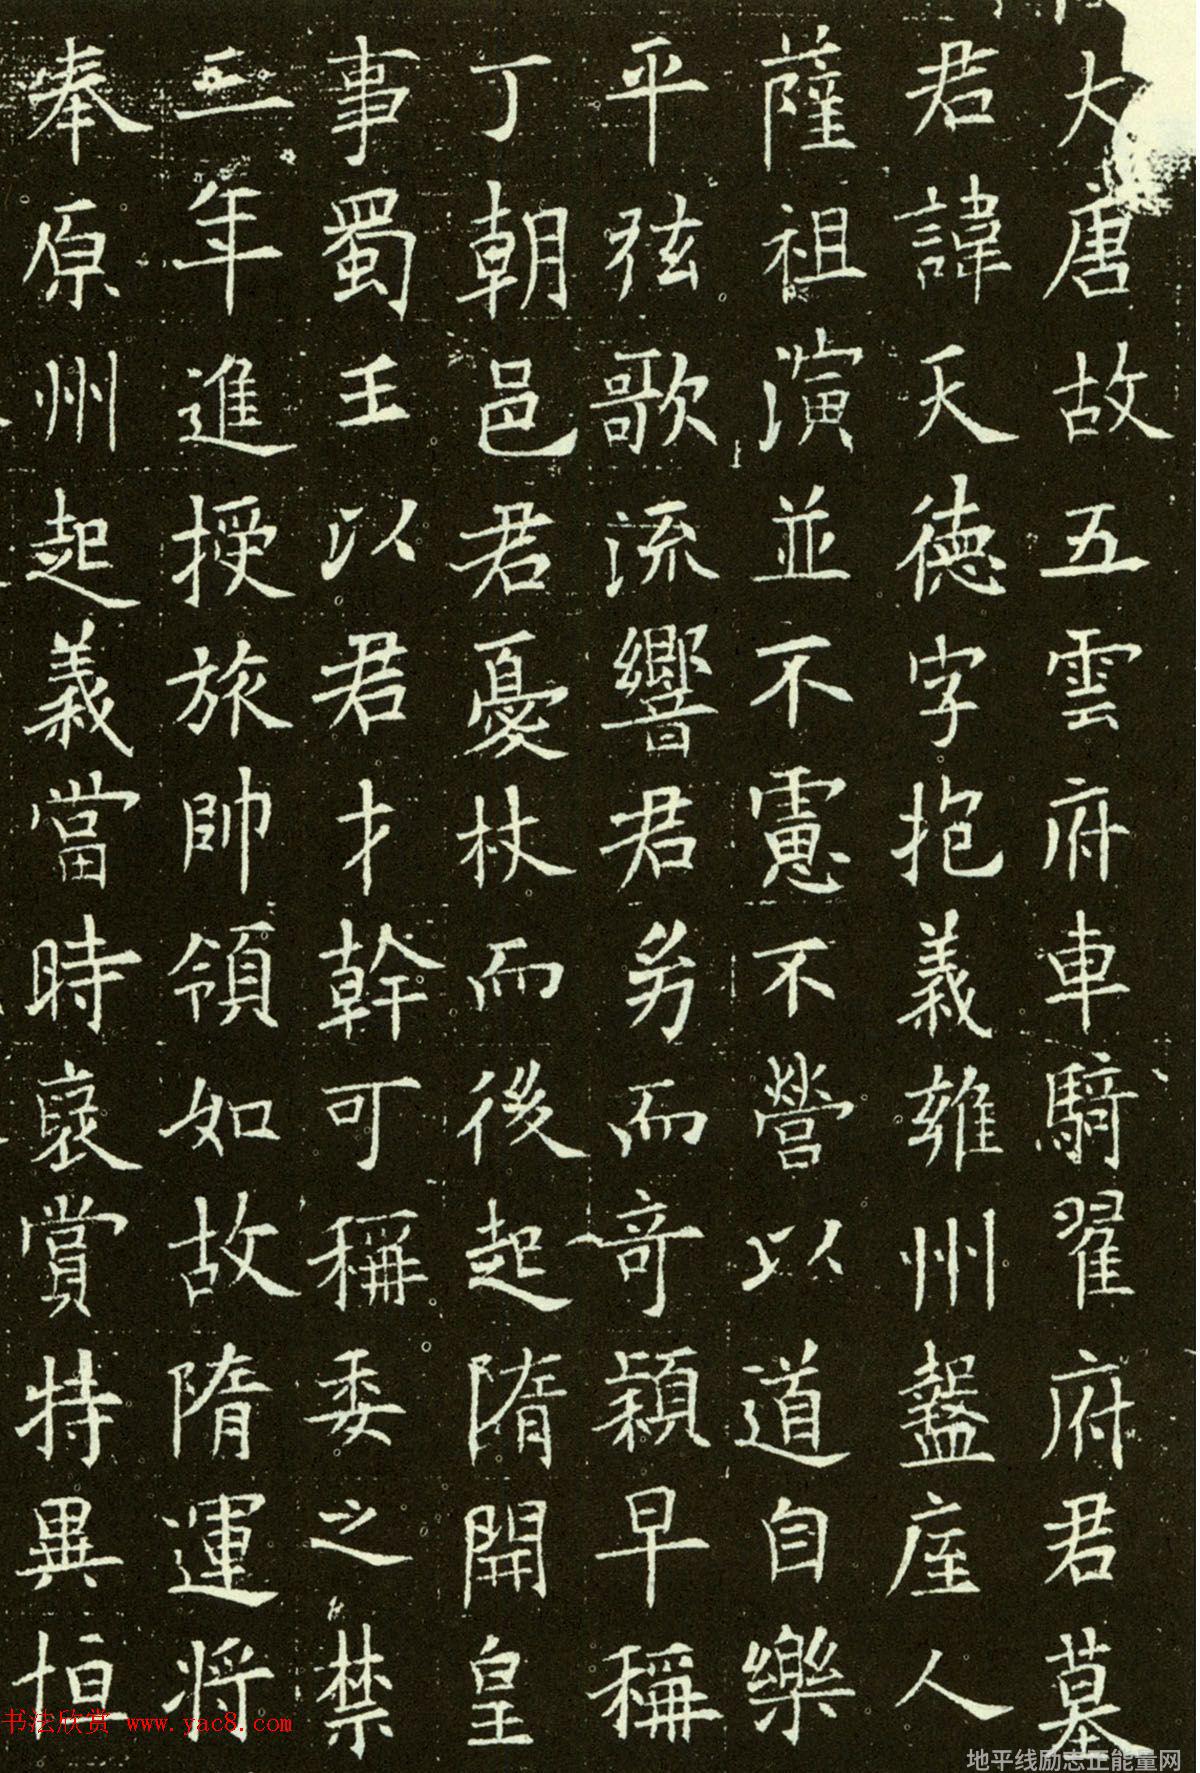 大唐故五雲府車騎翟府君墓
君諱天德字抱義雍州盩厔人
薩祖演並不慮不營以道自樂
平弦歌流響君㓜而奇穎早稱
丁朝邑君憂杖而後起隋開皇
事蜀王以君才幹可稱委之禁
三年進授旅帥領如故隋運将
奉原州起義當時褒賞特異恒
书法欣赏 www.yac8.com
地平线励志正能量网